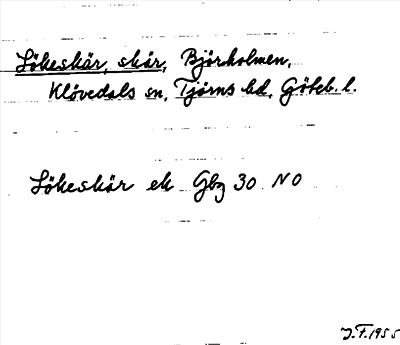 Lökeskär, skär, Björholmen,
Klövedals sn, Tjörns hd, Göteb. l.
Lökeskär ek Gbg 30 NO
J.F. 1955